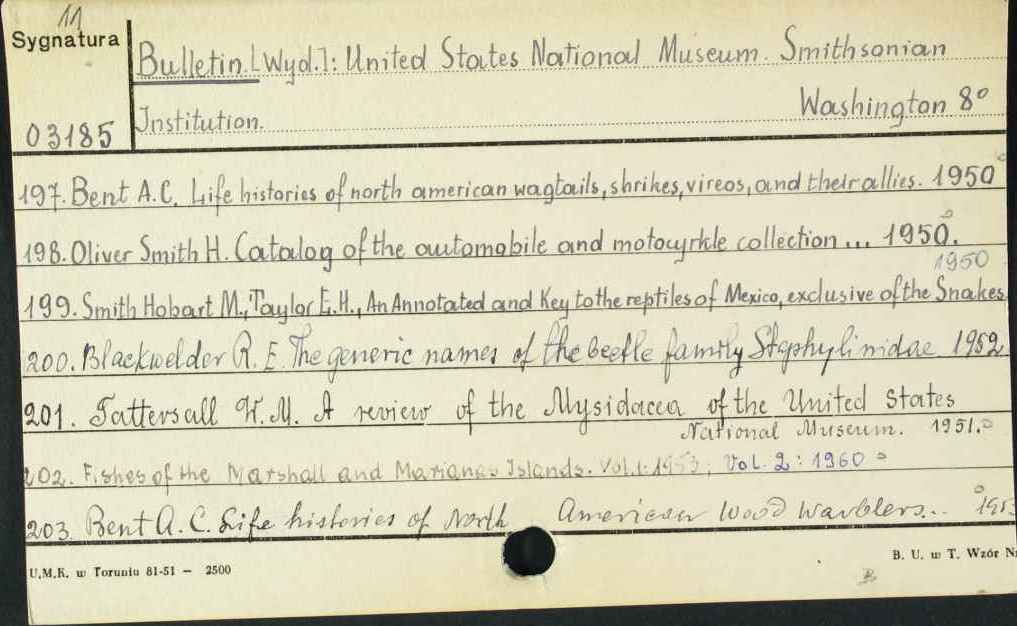 11
Sygnatura
Bulletin. [Wyd.]: United States National Museum. Smithsonian
Institution. Washington 8°
03185
197. Bent A.C. Life histories of north american wagtails, shrikes, vireos, and their allies. 1950
198. Oliver Smith H. Catalog of the automobile and motocyrkle collection ... 1950.
1950
199. Smith Hobart M., Taylor E.H., An Annotated and Key to the reptiles of Mexico, exclusive of the Snakes
200. Blackwelder R. E. The generic names of the beetle family Staphylinidae 1952
201. Tattersall W. M. A review of the Mysidacea of the United States
National Museum. 1951.
202. Fishes of the Marshall and Marianas Islands. Vol. 1: 1953; Vol. 2: 1960
203. Bent A. C. Life histories of North American Wood Warblers... 1953
U.M.K. w Toruniu 81-51 — 2500
B. U. w T. Wzór Nr